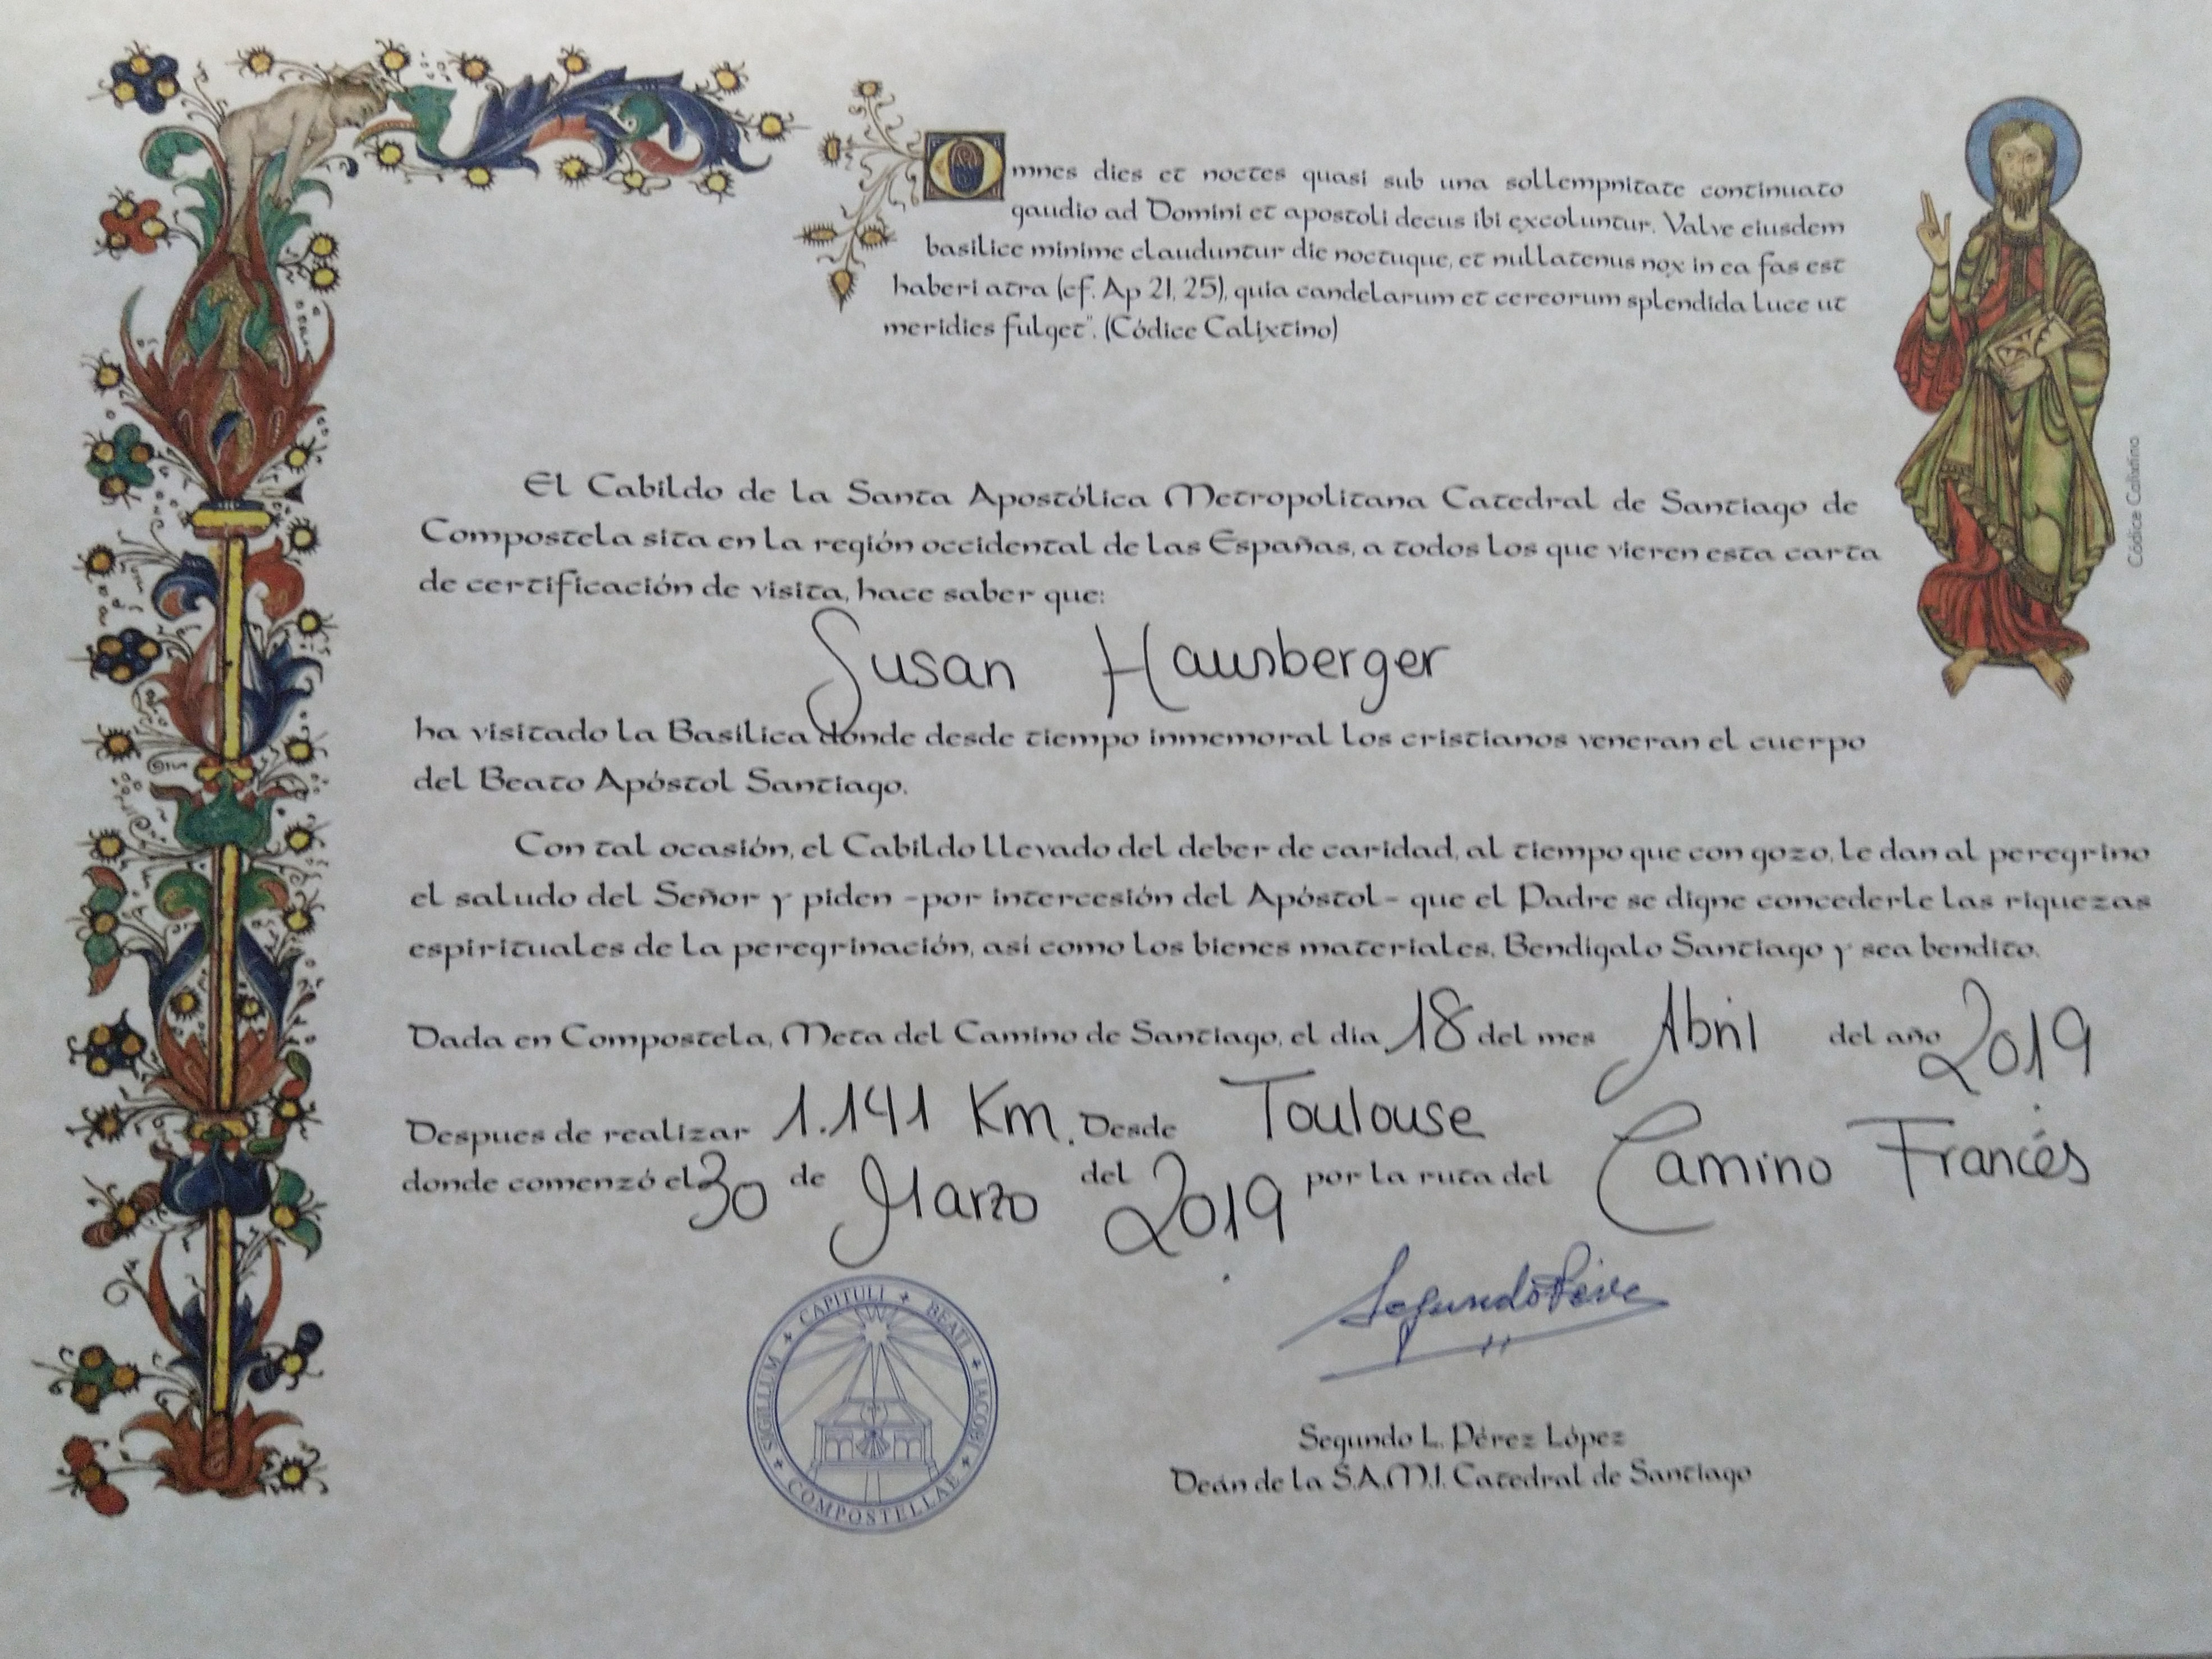 Omnes dies et noctes quasi sub una sollempnitate continuato
gaudio ad Domini et apostoli decus ibi excoluntur. Valve eiusdem
basilice minime clauduntur die noctuque, et nullatenus nox in ea fas est
haberi atra (cf. Ap 21, 25), quia candelarum et cereorum splendida luce ut
meridies fulget". (Códice Calixtino)
Códice Calixtino
El Cabildo de la Santa Apostólica Metropolitana Catedral de Santiago de
Compostela sita en la región occidental de las Españas, a todos los que vieren esta carta
de certificación de visita, hace saber que:
Susan Hausberger
ha visitado la Basílica donde desde tiempo inmemoral los cristianos veneran el cuerpo
del Beato Apóstol Santiago.
Con tal ocasión, el Cabildo llevado del deber de caridad, al tiempo que con gozo, le dan al peregrino
el saludo del Señor y piden -por intercesión del Apóstol- que el Padre se digne concederle las riquezas
espirituales de la peregrinación, así como los bienes materiales. Bendígalo Santiago y sea bendito.
Dada en Compostela, Meta del Camino de Santiago, el día 18 del mes Abril del año 2019
Despues de realizar 1.141 Km. Desde Toulouse
donde comenzó el 30 de Marzo del 2019 por la ruta del Camino Francés
SIGILLUM + CAPITULI + BEATI + IACOBI + COMPOSTELLAE +
Segundo Pérez
Segundo L. Pérez López
Deán de la S.A.M.I. Catedral de Santiago